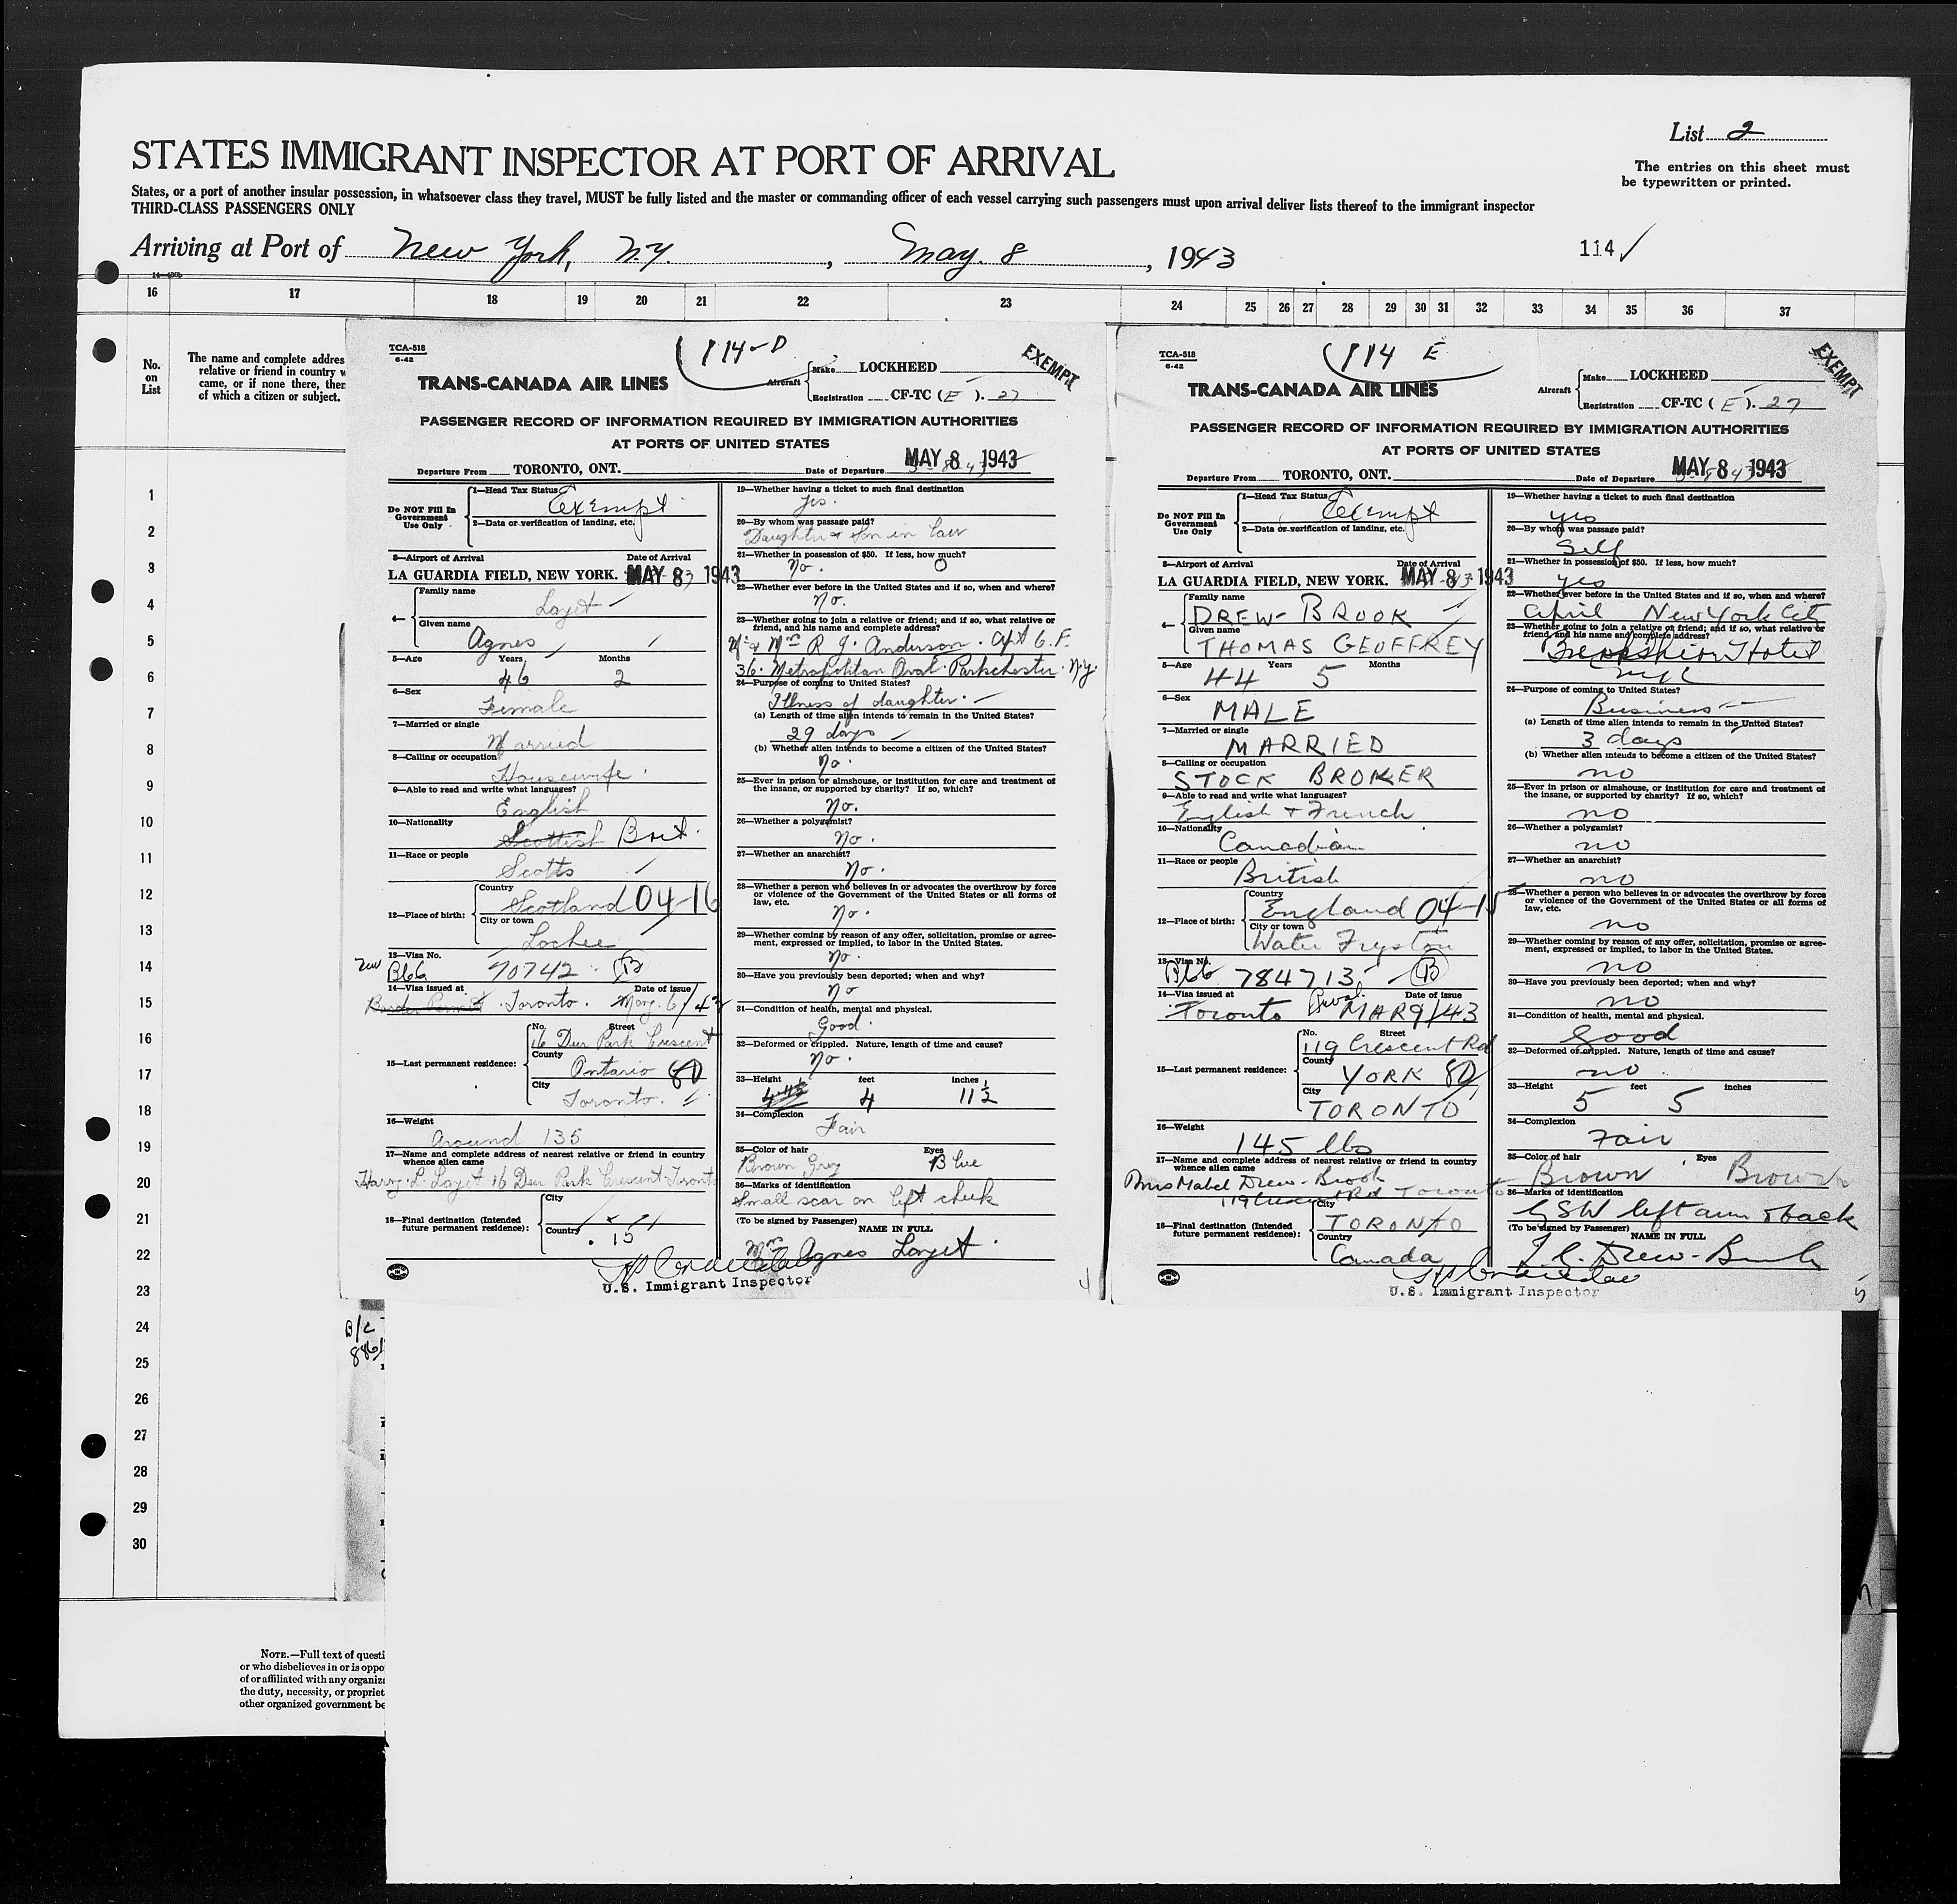 List 2
STATES IMMIGRANT INSPECTOR AT PORT OF ARRIVAL
The entries on this sheet must
be typewritten or printed.
States, or a port of another insular possession, in whatsoever class they travel, MUST be fully listed and the master or commanding officer of each vessel carrying such passengers must upon arrival deliver lists thereof to the immigrant inspector
THIRD-CLASS PASSENGERS ONLY
Arriving at Port of New York, N.Y., May. 8, 1943
114 ✓
16 17 18 19 20 21 22 23 24 25 26 27 28 29 30 31 32 33 34 35 36 37
No.
on
List
The name and complete addres
relative or friend in country w
came, or if none there, then
of which a citizen or subject.
1
2
3
4
5
6
7
8
9
10
11
12
13
14
15
16
17
18
19
20
21
22
23
24
25
26
27
28
29
30
B/C
886
NOTE.—Full text of questi
or who disbelieves in or is oppo
of or affiliated with any organiza
the duty, necessity, or propriet
other organized government be
TCA-518
6-42
114-D
EXEMPT
TRANS-CANADA AIR LINES
Aircraft
Make LOCKHEED
Registration CF-TC (E). 27
PASSENGER RECORD OF INFORMATION REQUIRED BY IMMIGRATION AUTHORITIES
AT PORTS OF UNITED STATES
Departure From TORONTO, ONT. Date of Departure MAY 8 1943
Do NOT Fill In
Government
Use Only
1—Head Tax Status Exempt
2—Data or verification of landing, etc.
3—Airport of Arrival Date of Arrival
LA GUARDIA FIELD, NEW YORK. MAY 8 1943
4—
Family name
Layet
Given name
Agnes
5—Age Years Months
46 2
6—Sex
Female
7—Married or single
Married
8—Calling or occupation
Housewife
9—Able to read and write what languages?
English
10—Nationality
Scottish Brit.
11—Race or people
Scotts
12—Place of birth:
Country
Scotland 04-16
City or town
Lochee
13—Visa No.
B66 70742 B
14—Visa issued at Date of issue
Border Permit Toronto. 6/43
15—Last permanent residence:
No. Street
16 Deer Park Crescent
County
Ontario 80
City
Toronto.
16—Weight
Around 135
17—Name and complete address of nearest relative or friend in country
whence alien came
Harry L. Layet 16 Deer Park Crescent Toronto
18—Final destination (Intended
future permanent residence):
City
Country
15
19—Whether having a ticket to such final destination
Yes.
20—By whom was passage paid?
Daughter & Son in law
21—Whether in possession of $50. If less, how much?
No. 0
22—Whether ever before in the United States and if so, when and where?
No.
23—Whether going to join a relative or friend; and if so, what relative or
friend, and his name and complete address?
Mr & Mrs R J. Anderson. Apt 6. F.
36. Metropolitan Oval. Parkchester. N.Y.
24—Purpose of coming to United States?
Illness of daughter.
(a) Length of time alien intends to remain in the United States?
29 days
(b) Whether alien intends to become a citizen of the United States?
No.
25—Ever in prison or almshouse, or institution for care and treatment of
the insane, or supported by charity? If so, which?
No.
26—Whether a polygamist?
No.
27—Whether an anarchist?
No.
28—Whether a person who believes in or advocates the overthrow by force
or violence of the Government of the United States or all forms of
law, etc.
No.
29—Whether coming by reason of any offer, solicitation, promise or agree-
ment, expressed or implied, to labor in the United States.
No.
30—Have you previously been deported; when and why?
No
31—Condition of health, mental and physical.
Good.
32—Deformed or crippled. Nature, length of time and cause?
No.
33—Height feet inches
4 11½
34—Complexion
Fair
35—Color of hair Eyes
Brown Grey Blue
36—Marks of identification
Small scar on left cheek
(To be signed by Passenger) NAME IN FULL
Mrs Agnes Layet.
U.S. Immigrant Inspector
4
TCA-518
6-42
114 E
EXEMPT
TRANS-CANADA AIR LINES
Aircraft
Make LOCKHEED
Registration CF-TC (E). 27
PASSENGER RECORD OF INFORMATION REQUIRED BY IMMIGRATION AUTHORITIES
AT PORTS OF UNITED STATES
Departure From TORONTO, ONT. Date of Departure MAY 8 1943
Do NOT Fill In
Government
Use Only
1—Head Tax Status Exempt
2—Data or verification of landing, etc.
3—Airport of Arrival Date of Arrival
LA GUARDIA FIELD, NEW YORK. MAY 8 1943
4—
Family name
DREW-BROOK
Given name
THOMAS GEOFFREY
5—Age Years Months
44 5
6—Sex
MALE
7—Married or single
MARRIED
8—Calling or occupation
STOCK BROKER
9—Able to read and write what languages?
English + French
10—Nationality
Canadian
11—Race or people
British
12—Place of birth:
Country
England 04-15
City or town
Water Fryston
13—Visa No.
B66 784713 B
14—Visa issued at Date of issue
Toronto MAR 9/43
15—Last permanent residence:
No. Street
119 Crescent Rd
County
YORK 80
City
TORONTO
16—Weight
145 lbs
17—Name and complete address of nearest relative or friend in country
whence alien came
Mrs Mabel Drew-Brook
119 Crescent Rd Toronto
18—Final destination (Intended
future permanent residence):
City
TORONTO
Country
Canada
19—Whether having a ticket to such final destination
yes
20—By whom was passage paid?
Self
21—Whether in possession of $50. If less, how much?
yes
22—Whether ever before in the United States and if so, when and where?
April New York City
23—Whether going to join a relative or friend; and if so, what relative or
friend, and his name and complete address?
Hotel
NYC
24—Purpose of coming to United States?
Business
(a) Length of time alien intends to remain in the United States?
3 days
(b) Whether alien intends to become a citizen of the United States?
no
25—Ever in prison or almshouse, or institution for care and treatment of
the insane, or supported by charity? If so, which?
no
26—Whether a polygamist?
no
27—Whether an anarchist?
no
28—Whether a person who believes in or advocates the overthrow by force
or violence of the Government of the United States or all forms of
law, etc.
no
29—Whether coming by reason of any offer, solicitation, promise or agree-
ment, expressed or implied, to labor in the United States.
no
30—Have you previously been deported; when and why?
no
31—Condition of health, mental and physical.
Good
32—Deformed or crippled. Nature, length of time and cause?
no
33—Height feet inches
5 5
34—Complexion
Fair
35—Color of hair Eyes
Brown Brown
36—Marks of identification
GSW left arm & back
(To be signed by Passenger) NAME IN FULL
T. G. Drew-Brook
U.S. Immigrant Inspector
5